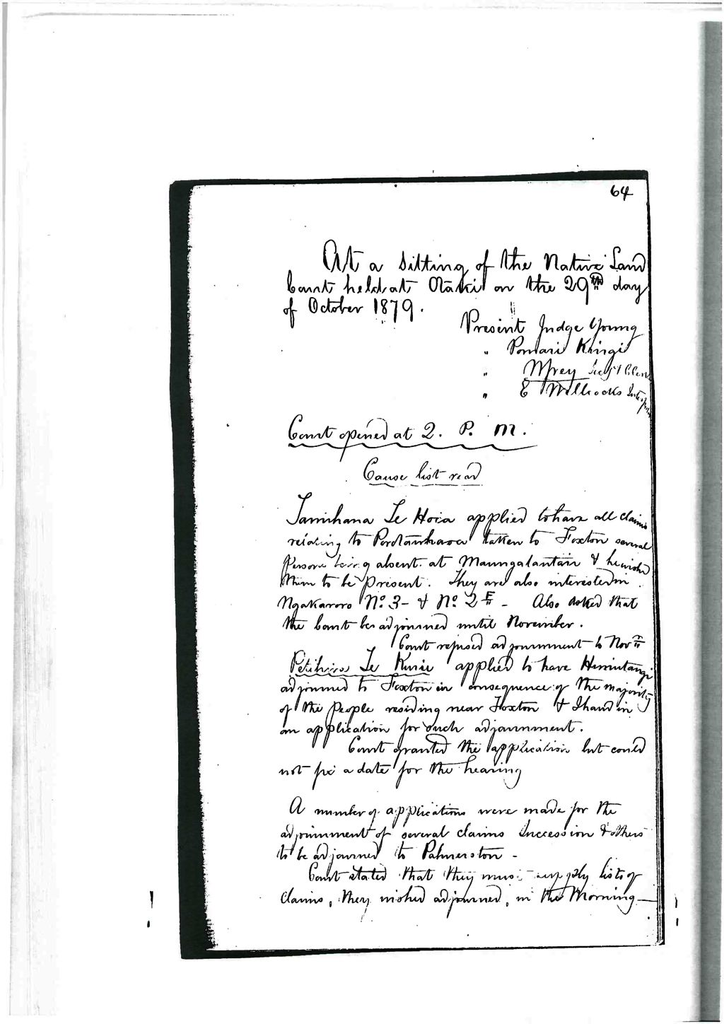 64
At a sitting of the Native Land
Court held at Otaki on the 29th day
of October 1879.
Present Judge Young
" Pomari Kingi
" Clerk
" E Willcocks
Court opened at 2. P. M.
Cause list read
Tamihana Te Hoia applied to have all claims
relating to taken to Foxton several
Persons being absent at & he wished
them to be present. They are also interested in
Ngakaroro No. 3 - & No. 2 - Also asked that
the Court be adjourned until November.
Court refused adjournment to Nov
Te Kuru applied to have Himitangi
adjourned to Foxton in consequence of the majority
of the People residing near Foxton & handed in
an application for such adjournment.
Court granted the application but could
not fix a date for the hearing
A number of applications were made for the
adjournment of several claims Succession & others
to be adjourned to Palmerston -
Court stated that they must supply lists of
claims, they wished adjourned, in the Morning -